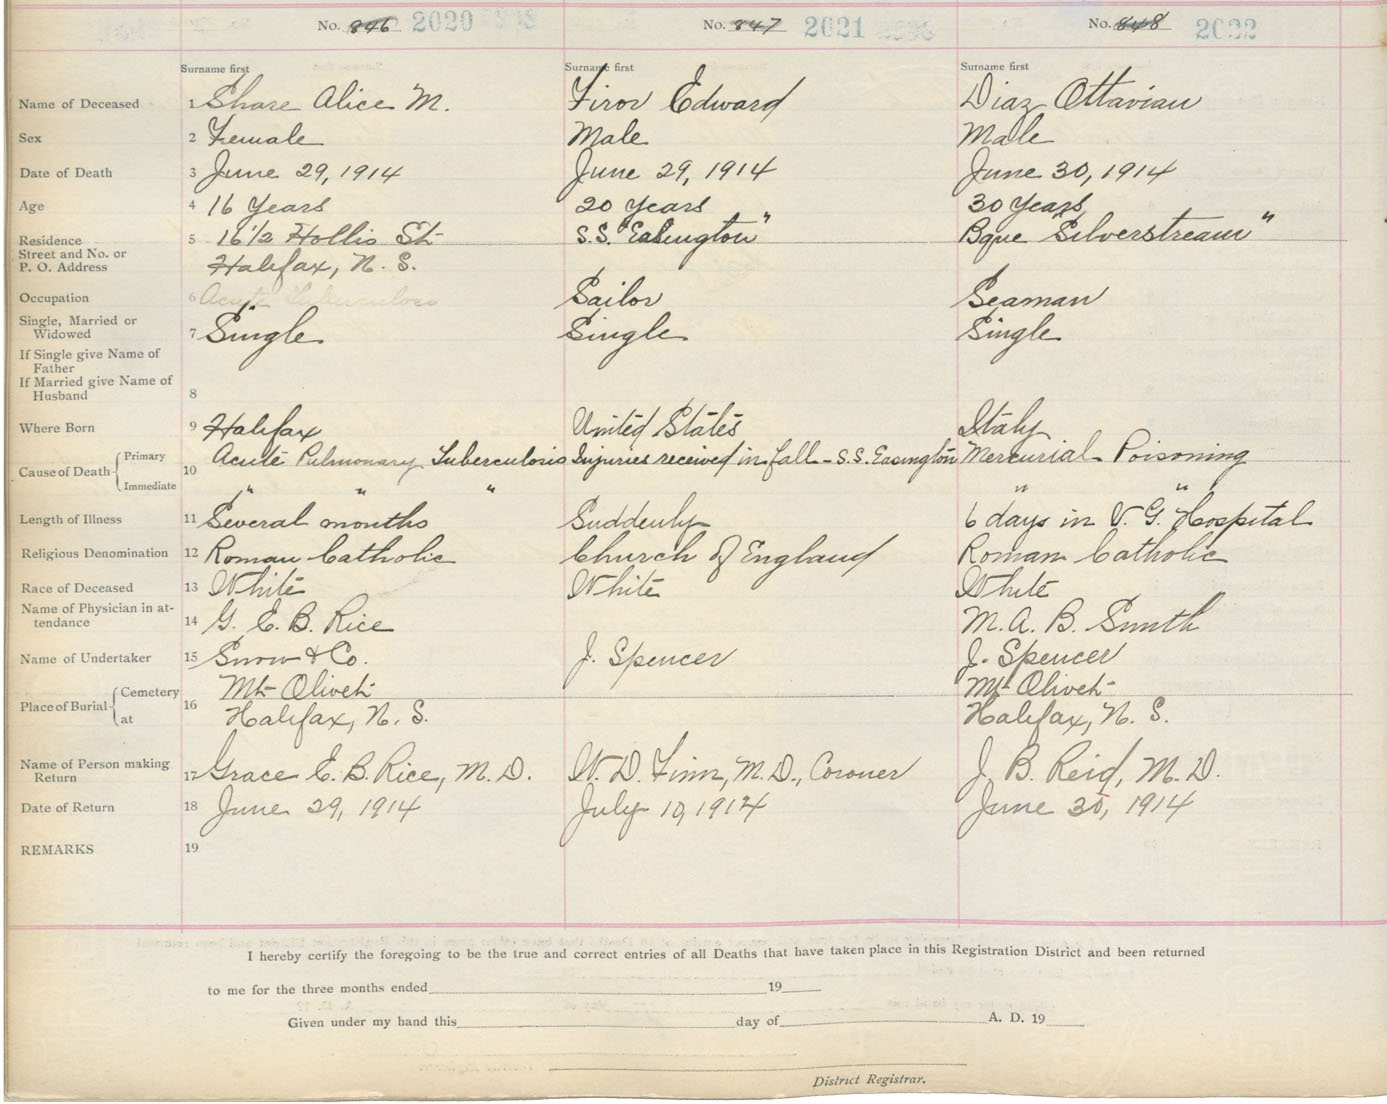 No. 846 2020
No. 847 2021
No. 848 2022
Surname first Surname first Surname first
Name of Deceased 1 Share Alice M. Firor Edward Diaz Ottavian
Sex 2 Female Male Male
Date of Death 3 June 29, 1914 June 29, 1914 June 30, 1914
Age 4 16 Years 20 years 30 Years
Residence 5 16½ Hollis St. S.S. "Easington" Bque "Silverstream"
Street and No. or
P. O. Address Halifax, N. S.
Occupation 6 Acute Tuberculosis Sailor Seaman
Single, Married or
Widowed 7 Single Single Single
If Single give Name of
Father
If Married give Name of
Husband 8
Where Born 9 Halifax United States Italy
Cause of Death Primary Acute Pulmonary Tuberculosis Injuries received in fall - S.S. Easington Mercurial Poisoning
10
Immediate " " " " "
Length of Illness 11 Several months Suddenly 6 days in V. G. Hospital
Religious Denomination 12 Roman Catholic Church of England Roman Catholic
Race of Deceased 13 White White White
Name of Physician in at-
tendance 14 G. E. B. Rice M. A. B. Smith
Name of Undertaker 15 Snow & Co. J. Spencer J. Spencer
Place of Burial Cemetery Mt Olivet Mt Olivet
16 at Halifax, N. S. Halifax, N. S.
Name of Person making
Return 17 Grace E. B. Rice, M. D. W. D. Finn, M. D., Coroner J. B. Reid, M. D.
Date of Return 18 June 29, 1914 July 10, 1914 June 30, 1914
REMARKS 19
I hereby certify the foregoing to be the true and correct entries of all Deaths that have taken place in this Registration District and been returned
to me for the three months ended 19
Given under my hand this day of A. D. 19
District Registrar.